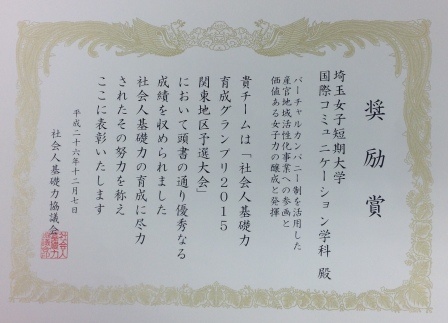 奨励賞
埼玉女子短期大学
国際コミュニケーション学科 殿
バーチャルカンパニー制を活用した
産官地域活性化事業への参画と
価値ある女子力の醸成と発揮
貴チームは「社会人基礎力
育成グランプリ2015
関東地区予選大会」
において頭書の通り優秀なる
成績を収められました
社会人基礎力の育成に尽力
されたその努力を称え
ここに表彰いたします
平成二十六年十二月七日
社会人基礎力協議会